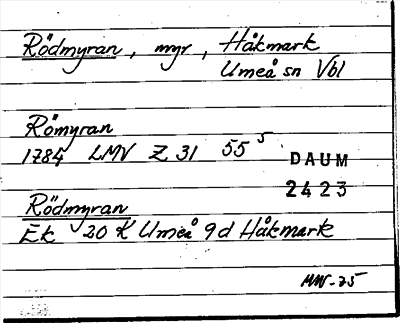 Rödmyran, myr, Håkmark
Umeå sn Vbl
Römyran
1784 LMV Z 31 55 s
DAUM
2423
Rödmyran
Ek 20 K Umeå 9d Håkmark
MW-75